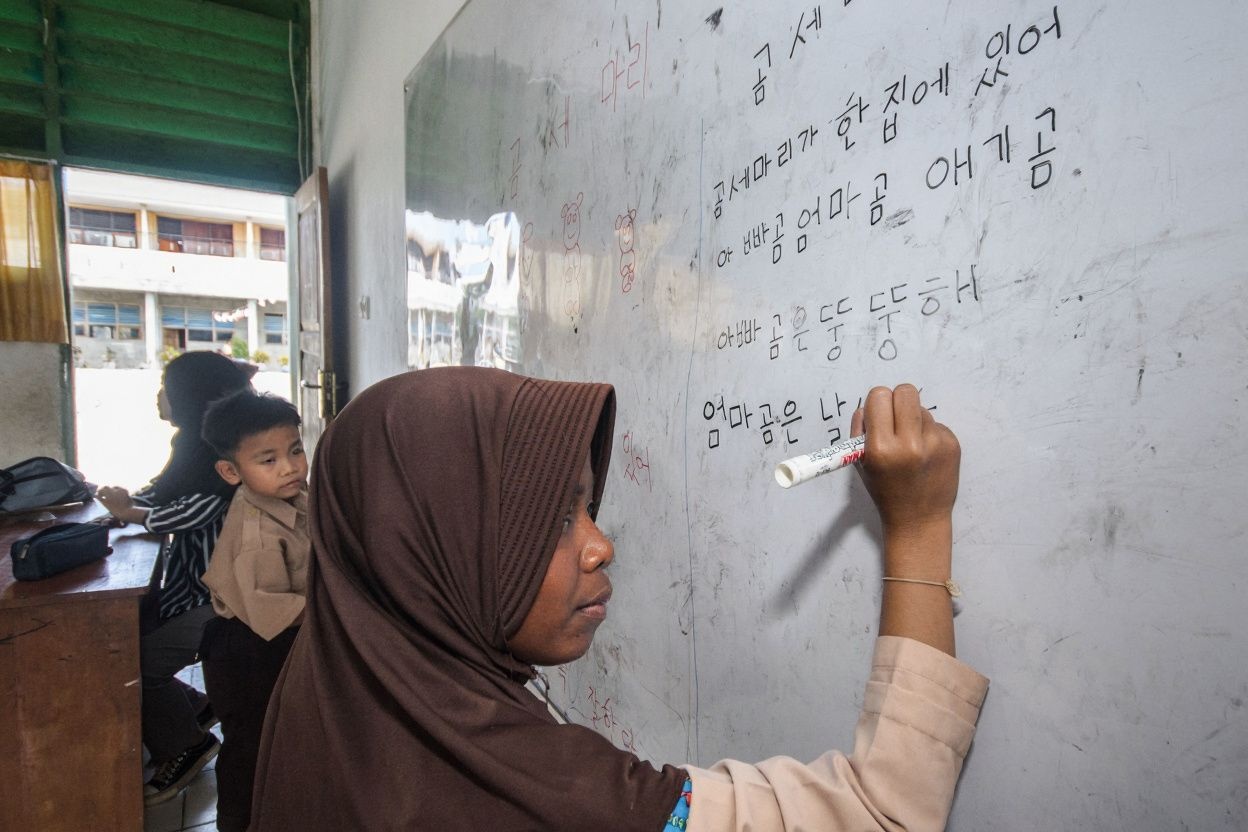 곰 세 마리
곰 세
곰세마리가 한 집에 있어
아 빠곰 엄마곰 애기곰.
아빠 곰은 뚱뚱해
엄마곰은 날
있어
잘한